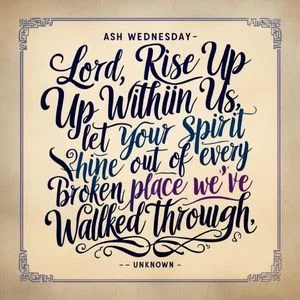 ASH WEDNESDAY-
Lord, Rise Up
Up Withiin Us,
let Your Spirit
Shine out of every
Broken place we've
Wallked through.
-- UNKNOWN -